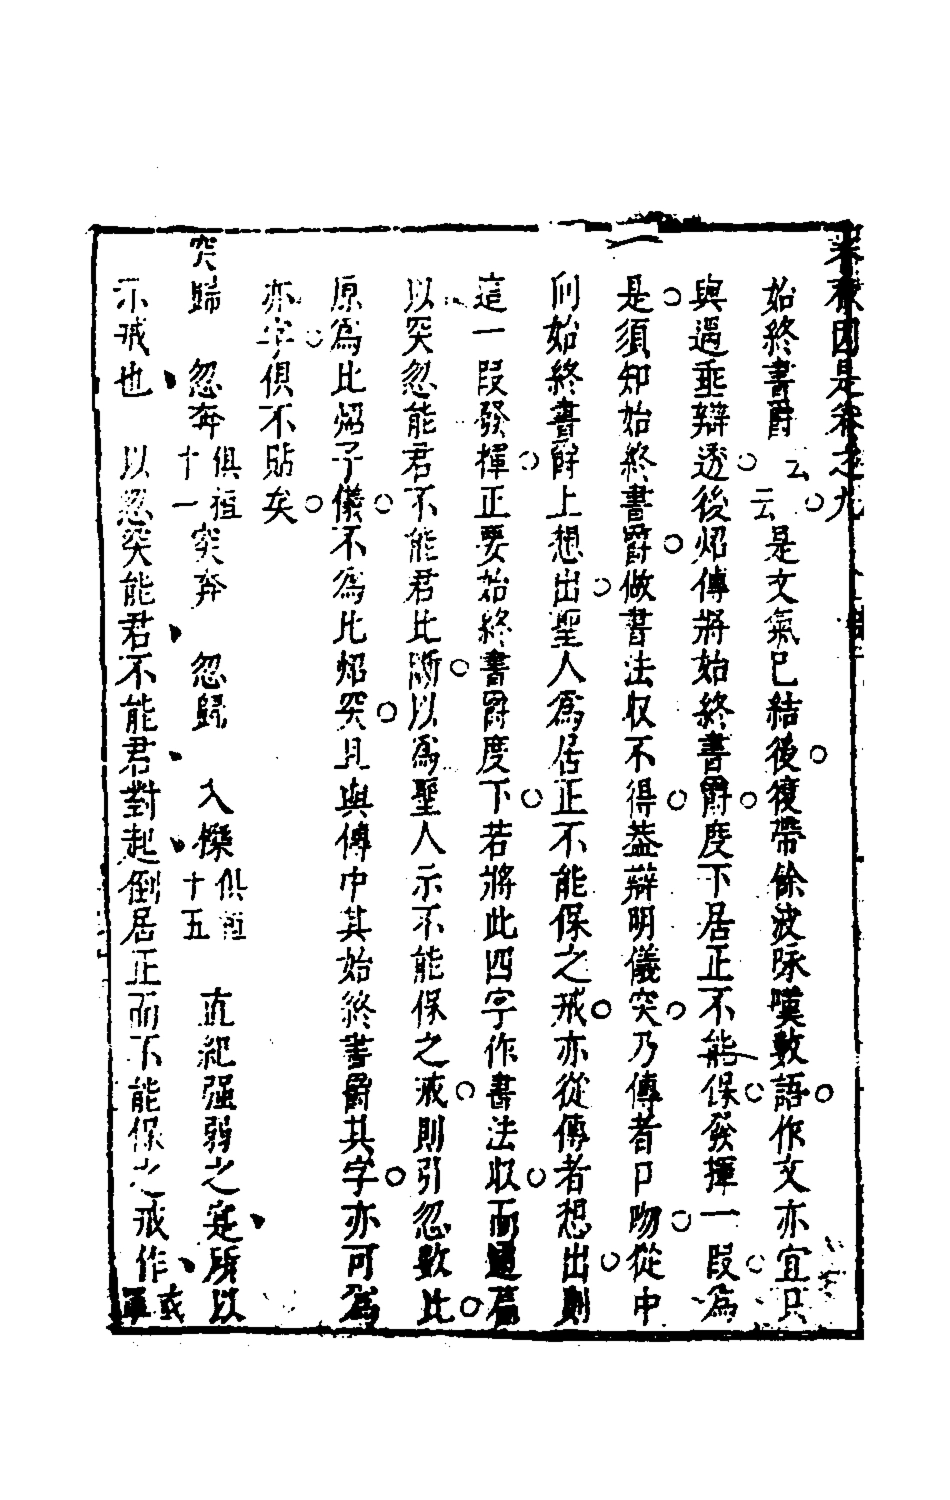 春秋因是卷之九
始終書爵云云是文氣已結後復帶餘波咏嘆數語作文亦宜只
與過乖辯透後炤傳將始終書爵度下居正不能保發揮一段為
是須知始終書爵做書法収不得葢辯明儀突乃傳者口吻從中
間始終書爵上想出聖人為居正不能保之戒亦從傳者想出則
這一段發揮正要始終書爵度下若將此四字作書法収而通篇
以突忽能君不能君比斷以為聖人示不能保之戒則引忽數比
原為比炤子儀不為比炤突且與傳中其始終書爵其字亦可為
亦字俱不貼矣
突歸 忽奔俱桓十一突奔 忽歸 入櫟俱桓十五 直紀强弱之寔所以
示戒也 以忽突能君不能君對起倒居正而不能保之戒作或單